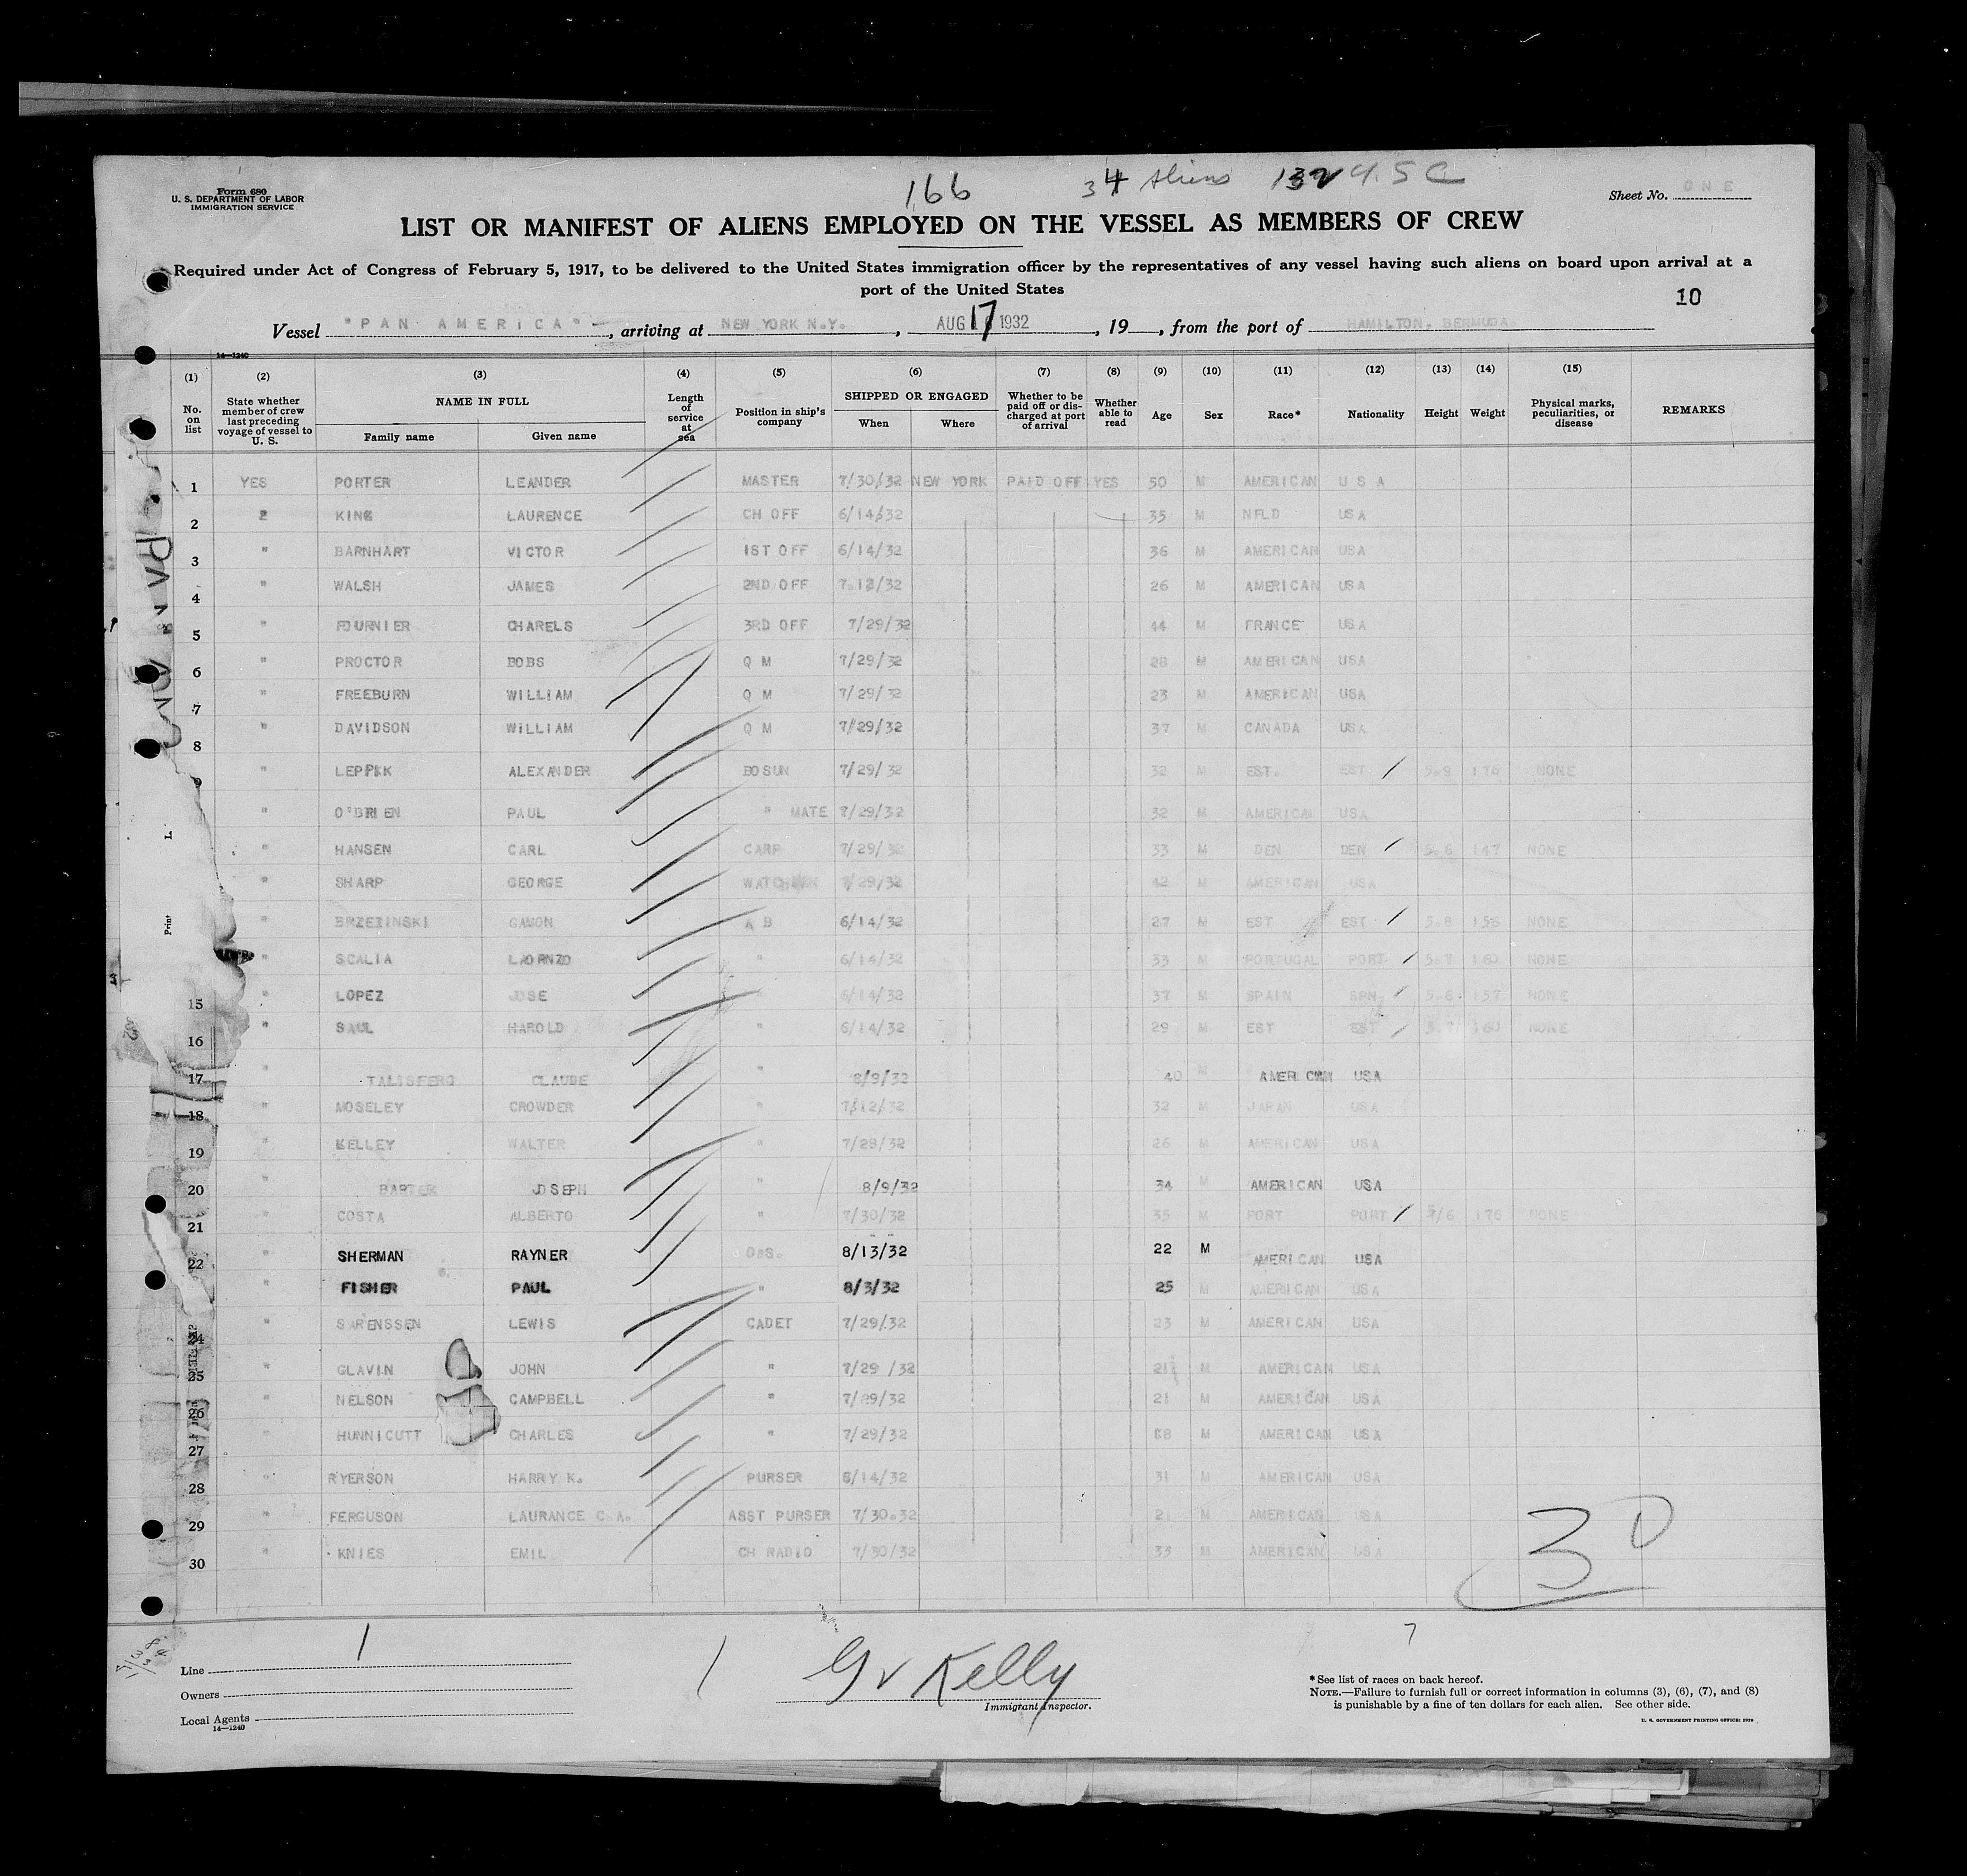 166 34 Aliens 132 U.S.C
Form 680
U. S. DEPARTMENT OF LABOR
IMMIGRATION SERVICE
Sheet No. ONE
LIST OR MANIFEST OF ALIENS EMPLOYED ON THE VESSEL AS MEMBERS OF CREW
Required under Act of Congress of February 5, 1917, to be delivered to the United States immigration officer by the representatives of any vessel having such aliens on board upon arrival at a
port of the United States
10
Vessel "PAN AMERICA", arriving at NEW YORK N.Y., AUG 17 1932, 19 , from the port of HAMILTON. BERMUDA.
14—1240
(1) (2) (3) (4) (5) (6) (7) (8) (9) (10) (11) (12) (13) (14) (15)
No. on list State whether member of crew last preceding voyage of vessel to U. S. NAME IN FULL Family name Given name Length of service at sea Position in ship's company SHIPPED OR ENGAGED When Where Whether to be paid off or discharged at port of arrival Whether able to read Age Sex Race* Nationality Height Weight Physical marks, peculiarities, or disease REMARKS
1 YES PORTER LEANDER MASTER 7/30/32 NEW YORK PAID OFF YES 50 M AMERICAN U S A
2 " KING LAURENCE CH OFF 6/14/32 35 M NFLD USA
3 " BARNHART VICTOR 1ST OFF 6/14/32 36 M AMERICAN USA
4 " WALSH JAMES 2ND OFF 7.12/32 26 M AMERICAN USA
5 " FOURNIER CHARELS 3RD OFF 7/29/32 44 M FRANCE USA
6 " PROCTOR BOBS Q M 7/29/32 28 M AMERICAN USA
7 " FREEBURN WILLIAM Q M 7/29/32 23 M AMERICAN USA
8 " DAVIDSON WILLIAM Q M 7/29/32 37 M CANADA USA
" LEPPIKK ALEXANDER BOSUN 7/29/32 32 M EST. EST 5.9 176 NONE
" O'BRIEN PAUL " MATE 7/29/32 32 M AMERICAN USA
" HANSEN CARL CARP 7/29/32 33 M DEN DEN 5.6 147 NONE
" SHARP GEORGE WATCHMAN 7/29/32 42 M AMERICAN USA
" BRZEZINSKI GAMON A B 6/14/32 27 M EST EST 5.8 156 NONE
" SCALIA LAORNZO " 6/14/32 33 M PORTUGAL PORT 5.7 160 NONE
15 " LOPEZ JOSE " 6/14/32 37 M SPAIN SPN 5.6 157 NONE
16 " SAUL HAROLD " 6/14/32 29 M EST EST 5.7 160 NONE
17 " TALISFERO CLAUDE " 8/9/32 40 M AMERICAN USA
18 " MOSELEY CROWDER " 7/12/32 32 M JAPAN USA
19 " KELLEY WALTER " 7/28/32 26 M AMERICAN USA
20 " BARTER JOSEPH " 8/9/32 34 M AMERICAN USA
21 " COSTA ALBERTO " 7/30/32 35 M PORT PORT 5/6 176 NONE
22 " SHERMAN RAYNER O.S. 8/13/32 22 M AMERICAN USA
" FISHER PAUL " 8/3/32 25 M AMERICAN USA
24 " SARENSSEN LEWIS CADET 7/29/32 23 M AMERICAN USA
25 " GLAVIN JOHN " 7/29/32 21 M AMERICAN USA
26 " NELSON CAMPBELL " 7/29/32 21 M AMERICAN USA
27 " HUNNICUTT CHARLES " 7/29/32 M AMERICAN USA
28 " RYERSON HARRY K. PURSER 6/14/32 31 M AMERICAN USA
29 " FERGUSON LAURANCE C.A. ASST PURSER 7/30.32 21 M AMERICAN USA
30 " KNIES EMIL CH RADIO 7/30/32 33 M AMERICAN USA
Line
Owners
Local Agents
14—1240
G V Kelly
Immigrant Inspector.
*See list of races on back hereof.
NOTE.—Failure to furnish full or correct information in columns (3), (6), (7), and (8)
is punishable by a fine of ten dollars for each alien. See other side.
U. S. GOVERNMENT PRINTING OFFICE: 1929